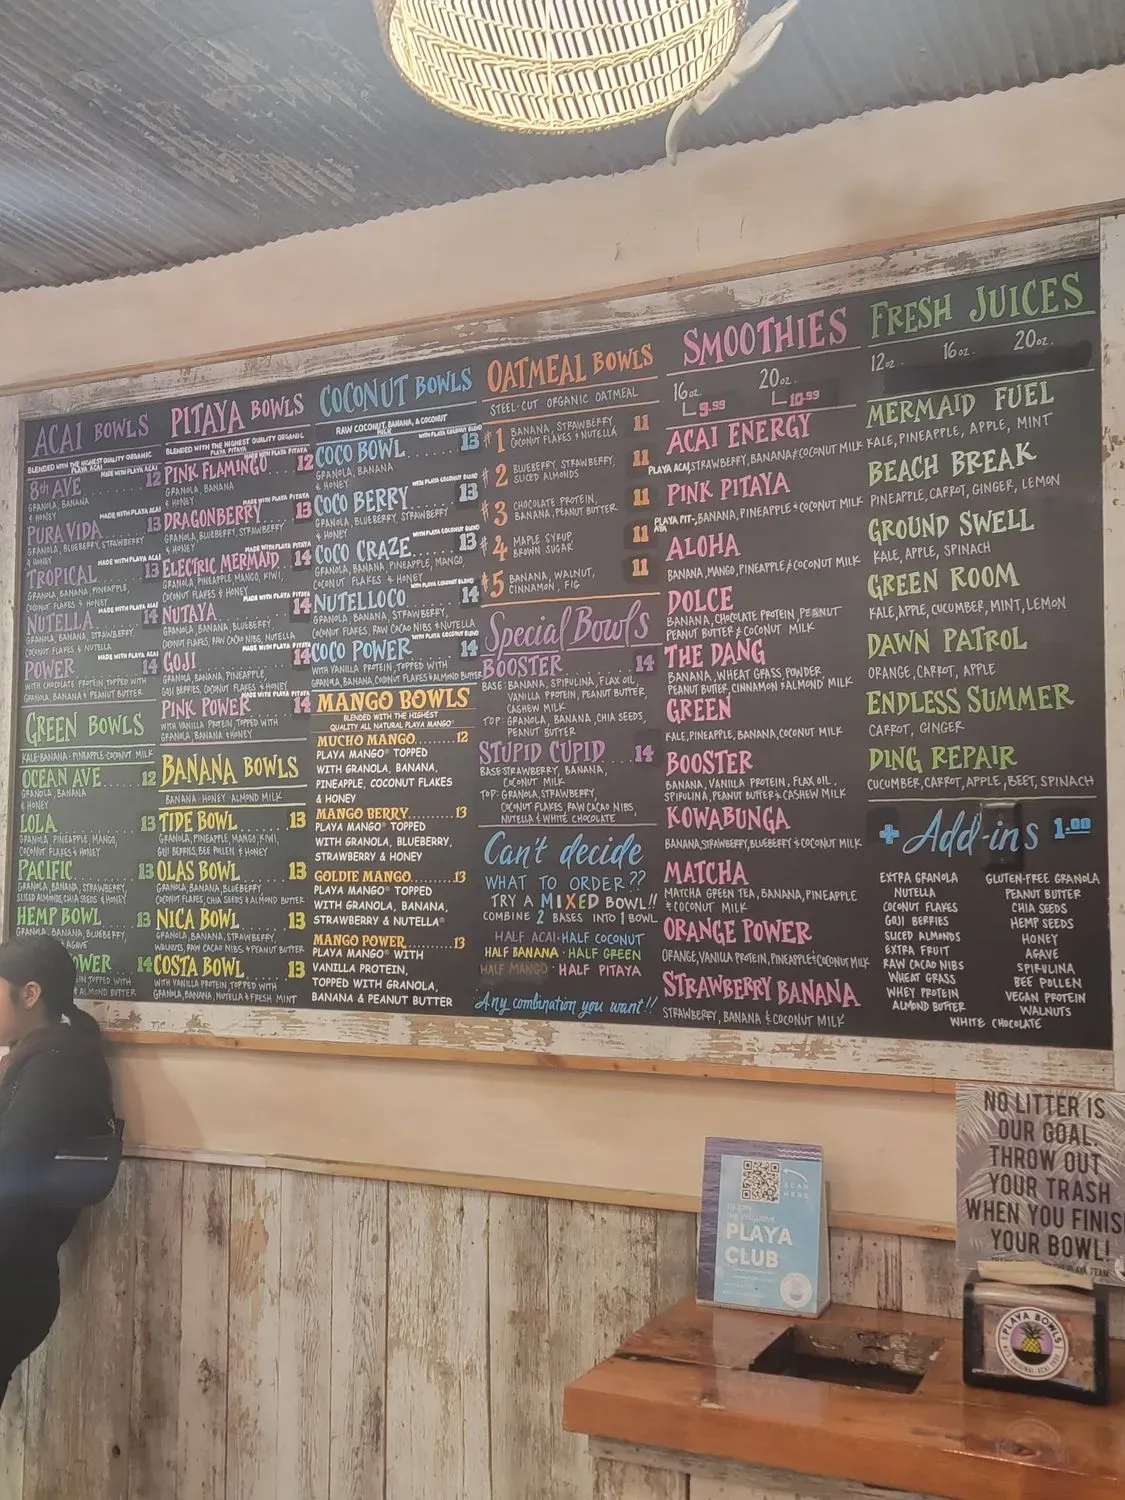 ACAI BOWLS
BLENDED WITH THE HIGHEST QUALITY ORGANIC
PLAYA ACAI
MADE WITH PLAYA ACAI
8th AVE 12
GRANOLA, BANANA
& HONEY
MADE WITH PLAYA ACAI
PURA VIDA 13
GRANOLA, BLUEBERRY, STRAWBERRY
& HONEY
MADE WITH PLAYA ACAI
TROPICAL 13
GRANOLA, BANANA, PINEAPPLE,
COCONUT FLAKES & HONEY
MADE WITH PLAYA ACAI
NUTELLA 14
GRANOLA, BANANA, STRAWBERRY,
COCONUT FLAKES & NUTELLA
MADE WITH PLAYA ACAI
POWER 14
WITH CHOCOLATE PROTEIN TOPPED WITH
GRANOLA, BANANA & PEANUT BUTTER
GREEN BOWLS
KALE·BANANA·PINEAPPLE·COCONUT MILK
OCEAN AVE 12
GRANOLA, BANANA
& HONEY
LOLA 13
GRANOLA, PINEAPPLE, MANGO,
COCONUT FLAKES & HONEY
PACIFIC 13
GRANOLA, BANANA, STRAWBERRY,
SLICED ALMONDS, CHIA SEEDS & HONEY
HEMP BOWL 13
GRANOLA, BANANA, BLUEBERRY,
AGAVE
OWER 14
TOPPED WITH
ALMOND BUTTER
PITAYA BOWLS
BLENDED WITH THE HIGHEST QUALITY ORGANIC
PLAYA PITAYA
MADE WITH PLAYA PITAYA
PINK FLAMINGO 12
GRANOLA, BANANA
& HONEY
MADE WITH PLAYA PITAYA
DRAGONBERRY 13
GRANOLA, BLUEBERRY, STRAWBERRY
& HONEY
MADE WITH PLAYA PITAYA
ELECTRIC MERMAID 14
GRANOLA, PINEAPPLE, MANGO, KIWI,
COCONUT FLAKES & HONEY
MADE WITH PLAYA PITAYA
NUTAYA 14
GRANOLA, BANANA, BLUEBERRY,
COCONUT FLAKES, RAW CACAO NIBS, NUTELLA
MADE WITH PLAYA PITAYA
GOJI 14
GRANOLA, BANANA, PINEAPPLE,
GOJI BERRIES, COCONUT FLAKES & HONEY
MADE WITH PLAYA PITAYA
PINK POWER 14
WITH VANILLA PROTEIN TOPPED WITH
GRANOLA, BANANA & HONEY
BANANA BOWLS
BANANA·HONEY·ALMOND MILK
TIDE BOWL 13
GRANOLA, PINEAPPLE, MANGO, KIWI,
GOJI BERRIES, BEE POLLEN & HONEY
OLAS BOWL 13
GRANOLA, BANANA, BLUEBERRY,
COCONUT FLAKES, CHIA SEEDS & ALMOND BUTTER
NICA BOWL 13
GRANOLA, BANANA, STRAWBERRY,
WALNUTS, RAW CACAO NIBS & PEANUT BUTTER
COSTA BOWL 13
WITH VANILLA PROTEIN, TOPPED WITH
GRANOLA, BANANA, NUTELLA & FRESH MINT
COCONUT BOWLS
RAW COCONUT, BANANA, & COCONUT
MILK
WITH PLAYA COCONUT BLEND
COCO BOWL 13
GRANOLA, BANANA
& HONEY
WITH PLAYA COCONUT BLEND
COCO BERRY 13
GRANOLA, BLUEBERRY, STRAWBERRY
& HONEY
WITH PLAYA COCONUT BLEND
COCO CRAZE 13
GRANOLA, BANANA, PINEAPPLE, MANGO,
COCONUT FLAKES & HONEY
WITH PLAYA COCONUT BLEND
NUTELLOCO 14
GRANOLA, BANANA, STRAWBERRY,
COCONUT FLAKES, RAW CACAO NIBS & NUTELLA
WITH PLAYA COCONUT BLEND
COCO POWER 14
WITH VANILLA PROTEIN, TOPPED WITH
GRANOLA, BANANA, COCONUT FLAKES & ALMOND BUTTER
MANGO BOWLS
BLENDED WITH THE HIGHEST
QUALITY ALL NATURAL PLAYA MANGO®
MUCHO MANGO 12
PLAYA MANGO® TOPPED
WITH GRANOLA, BANANA,
PINEAPPLE, COCONUT FLAKES
& HONEY
MANGO BERRY 13
PLAYA MANGO® TOPPED
WITH GRANOLA, BLUEBERRY,
STRAWBERRY & HONEY
GOLDIE MANGO 13
PLAYA MANGO® TOPPED
WITH GRANOLA, BANANA,
STRAWBERRY & NUTELLA®
MANGO POWER 13
PLAYA MANGO® WITH
VANILLA PROTEIN,
TOPPED WITH GRANOLA,
BANANA & PEANUT BUTTER
OATMEAL BOWLS
STEEL-CUT ORGANIC OATMEAL
#1 BANANA, STRAWBERRY, 11
COCONUT FLAKES & NUTELLA
#2 BLUEBERRY, STRAWBERRY, 11
SLICED ALMONDS
#3 CHOCOLATE PROTEIN, 11
BANANA, PEANUT BUTTER
#4 MAPLE SYRUP, 11
BROWN SUGAR
#5 BANANA, WALNUT, 11
CINNAMON, FIG
Special Bowls
BOOSTER 14
BASE: BANANA, SPIRULINA, FLAX OIL,
VANILLA PROTEIN, PEANUT BUTTER,
CASHEW MILK
TOP: GRANOLA, BANANA, CHIA SEEDS,
PEANUT BUTTER
STUPID CUPID 14
BASE: STRAWBERRY, BANANA,
COCONUT MILK
TOP: GRANOLA, STRAWBERRY,
COCONUT FLAKES, RAW CACAO NIBS,
NUTELLA & WHITE CHOCOLATE
Can't decide
WHAT TO ORDER??
TRY A MIXED BOWL!!
COMBINE 2 BASES INTO 1 BOWL
HALF ACAI·HALF COCONUT
HALF BANANA·HALF GREEN
HALF MANGO·HALF PITAYA
Any combination you want!!
SMOOTHIES
16oz. 20oz.
9.99 10.99
ACAI ENERGY
PLAYA ACAI, STRAWBERRY, BANANA & COCONUT MILK
PINK PITAYA
PLAYA PIT-AYA, BANANA, PINEAPPLE & COCONUT MILK
ALOHA
BANANA, MANGO, PINEAPPLE & COCONUT MILK
DOLCE
BANANA, CHOCOLATE PROTEIN, PEANUT
PEANUT BUTTER & COCONUT MILK
THE DANG
BANANA, WHEAT GRASS, POWDER,
PEANUT BUTTER, CINNAMON & ALMOND MILK
GREEN
KALE, PINEAPPLE, BANANA, COCONUT MILK
BOOSTER
BANANA, VANILLA PROTEIN, FLAX OIL,
SPIRULINA, PEANUT BUTTER & CASHEW MILK
KOWABUNGA
BANANA, STRAWBERRY, BLUEBERRY & COCONUT MILK
MATCHA
MATCHA GREEN TEA, BANANA, PINEAPPLE
& COCONUT MILK
ORANGE POWER
ORANGE, VANILLA PROTEIN, PINEAPPLE & COCONUT MILK
STRAWBERRY BANANA
STRAWBERRY, BANANA & COCONUT MILK
FRESH JUICES
12oz. 16oz. 20oz.
MERMAID FUEL
KALE, PINEAPPLE, APPLE, MINT
BEACH BREAK
PINEAPPLE, CARROT, GINGER, LEMON
GROUND SWELL
KALE, APPLE, SPINACH
GREEN ROOM
KALE, APPLE, CUCUMBER, MINT, LEMON
DAWN PATROL
ORANGE, CARROT, APPLE
ENDLESS SUMMER
CARROT, GINGER
DING REPAIR
CUCUMBER, CARROT, APPLE, BEET, SPINACH
+ Add-ins 1.00
EXTRA GRANOLA
NUTELLA
COCONUT FLAKES
GOJI BERRIES
SLICED ALMONDS
EXTRA FRUIT
RAW CACAO NIBS
WHEAT GRASS
WHEY PROTEIN
ALMOND BUTTER
GLUTEN-FREE GRANOLA
PEANUT BUTTER
CHIA SEEDS
HEMP SEEDS
HONEY
AGAVE
SPIRULINA
BEE POLLEN
VEGAN PROTEIN
WALNUTS
WHITE CHOCOLATE
NO LITTER IS
OUR GOAL.
THROW OUT
YOUR TRASH
WHEN YOU FINIS
YOUR BOWL!
SCAN
HERE
PLAYA
CLUB
PLAYA BOWLS